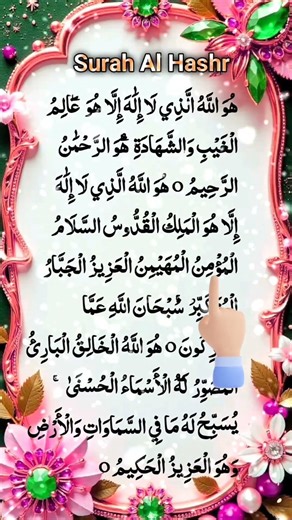 Surah Al Hashr
هُوَ اللَّهُ الَّذِي لَا إِلَٰهَ إِلَّا هُوَ عَالِمُ
الْغَيْبِ وَالشَّهَادَةِ هُوَ الرَّحْمَٰنُ
الرَّحِيمُ ○ هُوَ اللَّهُ الَّذِي لَا إِلَٰهَ
إِلَّا هُوَ الْمَلِكُ الْقُدُّوسُ السَّلَامُ
الْمُؤْمِنُ الْمُهَيْمِنُ الْعَزِيزُ الْجَبَّارُ
سُبْحَانَ اللَّهِ عَمَّا
○ هُوَ اللَّهُ الْخَالِقُ الْبَارِئُ
الْمُصَوِّرُ لَهُ الْأَسْمَاءُ الْحُسْنَىٰ ۚ
يُسَبِّحُ لَهُ مَا فِي السَّمَاوَاتِ وَالْأَرْضِ
وَهُوَ الْعَزِيزُ الْحَكِيمُ ○